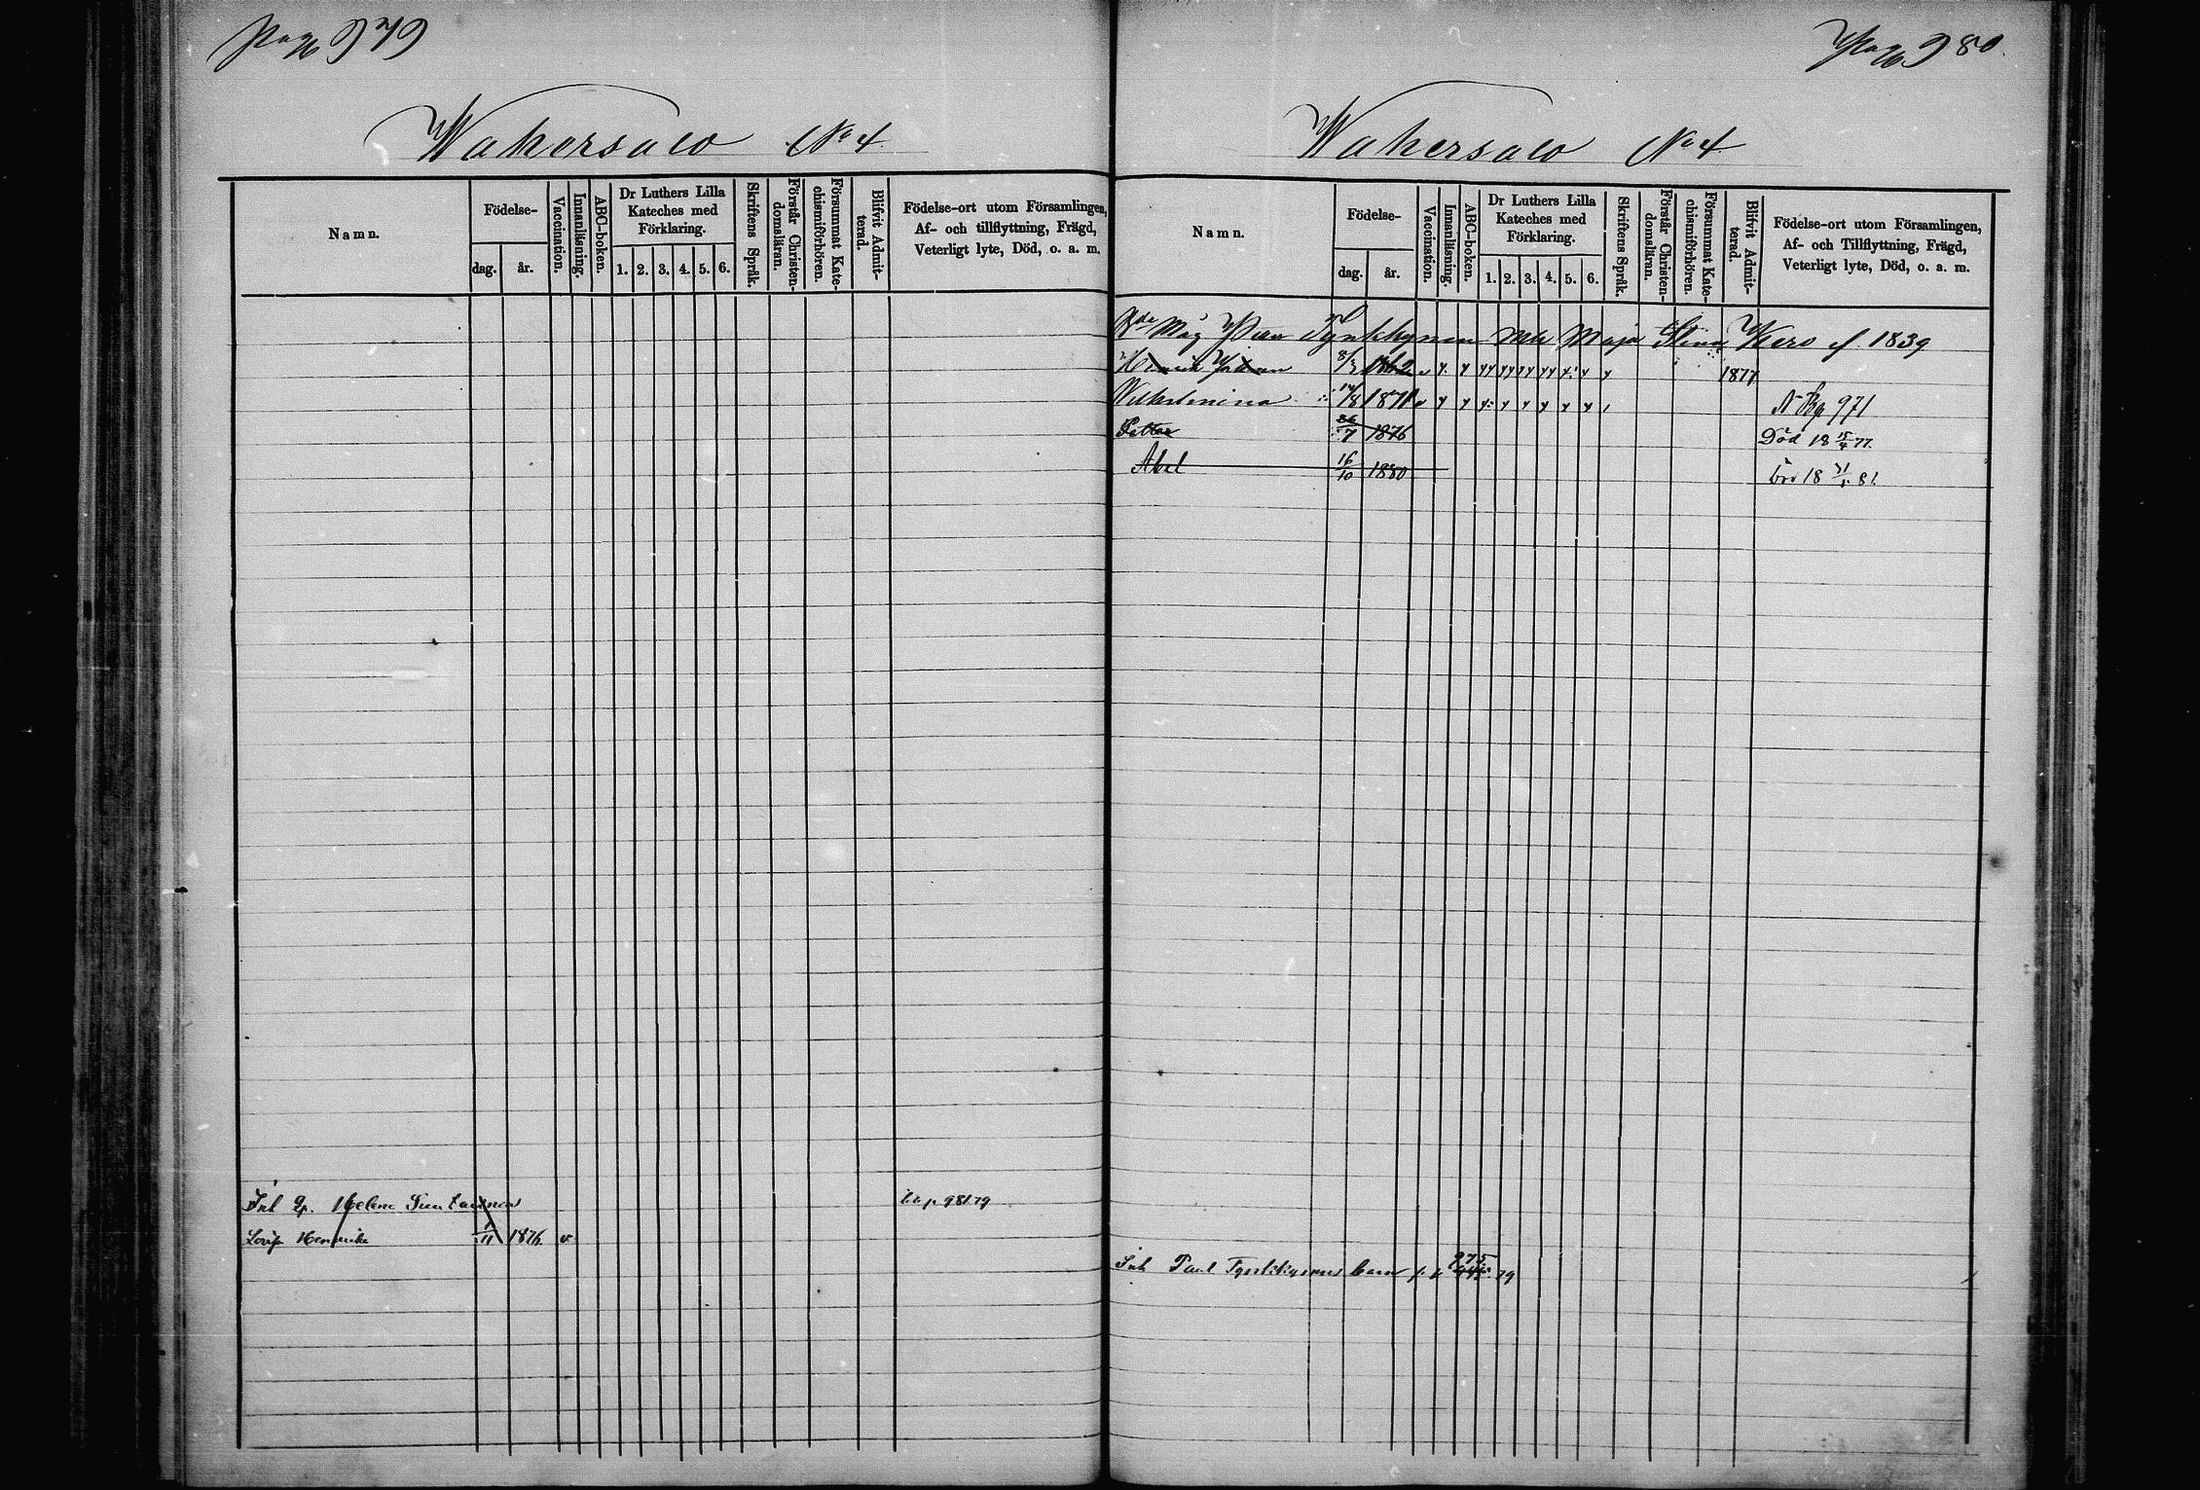 Pag 979
Wakersalo No 4
Namn.
Födelse-
dag.
år.
Vaccination.
Innanläsning.
ABC-boken.
Dr Luthers Lilla
Kateches med
Förklaring.
1. 2. 3. 4. 5. 6.
Skriftens Språk.
Förstår Christen-
domsläran.
Försummat Kate-
chismiförhören.
Blifvit Admit-
terad.
Födelse-ort utom Församlingen,
Af- och tillflyttning, Frägd,
Veterligt lyte, Död, o. a. m.
Inh Helena
Lovisa Henrika 1/11 1876 v
Pag 980.
Wakersalo No 4
Namn.
Födelse-
dag.
år.
Vaccination.
Innanläsning.
ABC-boken.
Dr Luthers Lilla
Kateches med
Förklaring.
1. 2. 3. 4. 5. 6.
Skriftens Språk.
Förstår Christen-
domsläran.
Försummat Kate-
chismiförhören.
Blifvit Admit-
terad.
Födelse-ort utom Församlingen,
Af- och Tillflyttning, Frägd,
Veterligt lyte, Död, o. a. m.
Måg Tynkkynen Maja Stina 1839
Henrik Johan 8/3 1862 1877
Wilhelmina 14/8 1871 N Bg 971
Petter 26/7 1876 Död 18 15/4 77.
Abel 16/10 1880 Död 18 81.
Inh Paul Tynkkynens barn 975 79